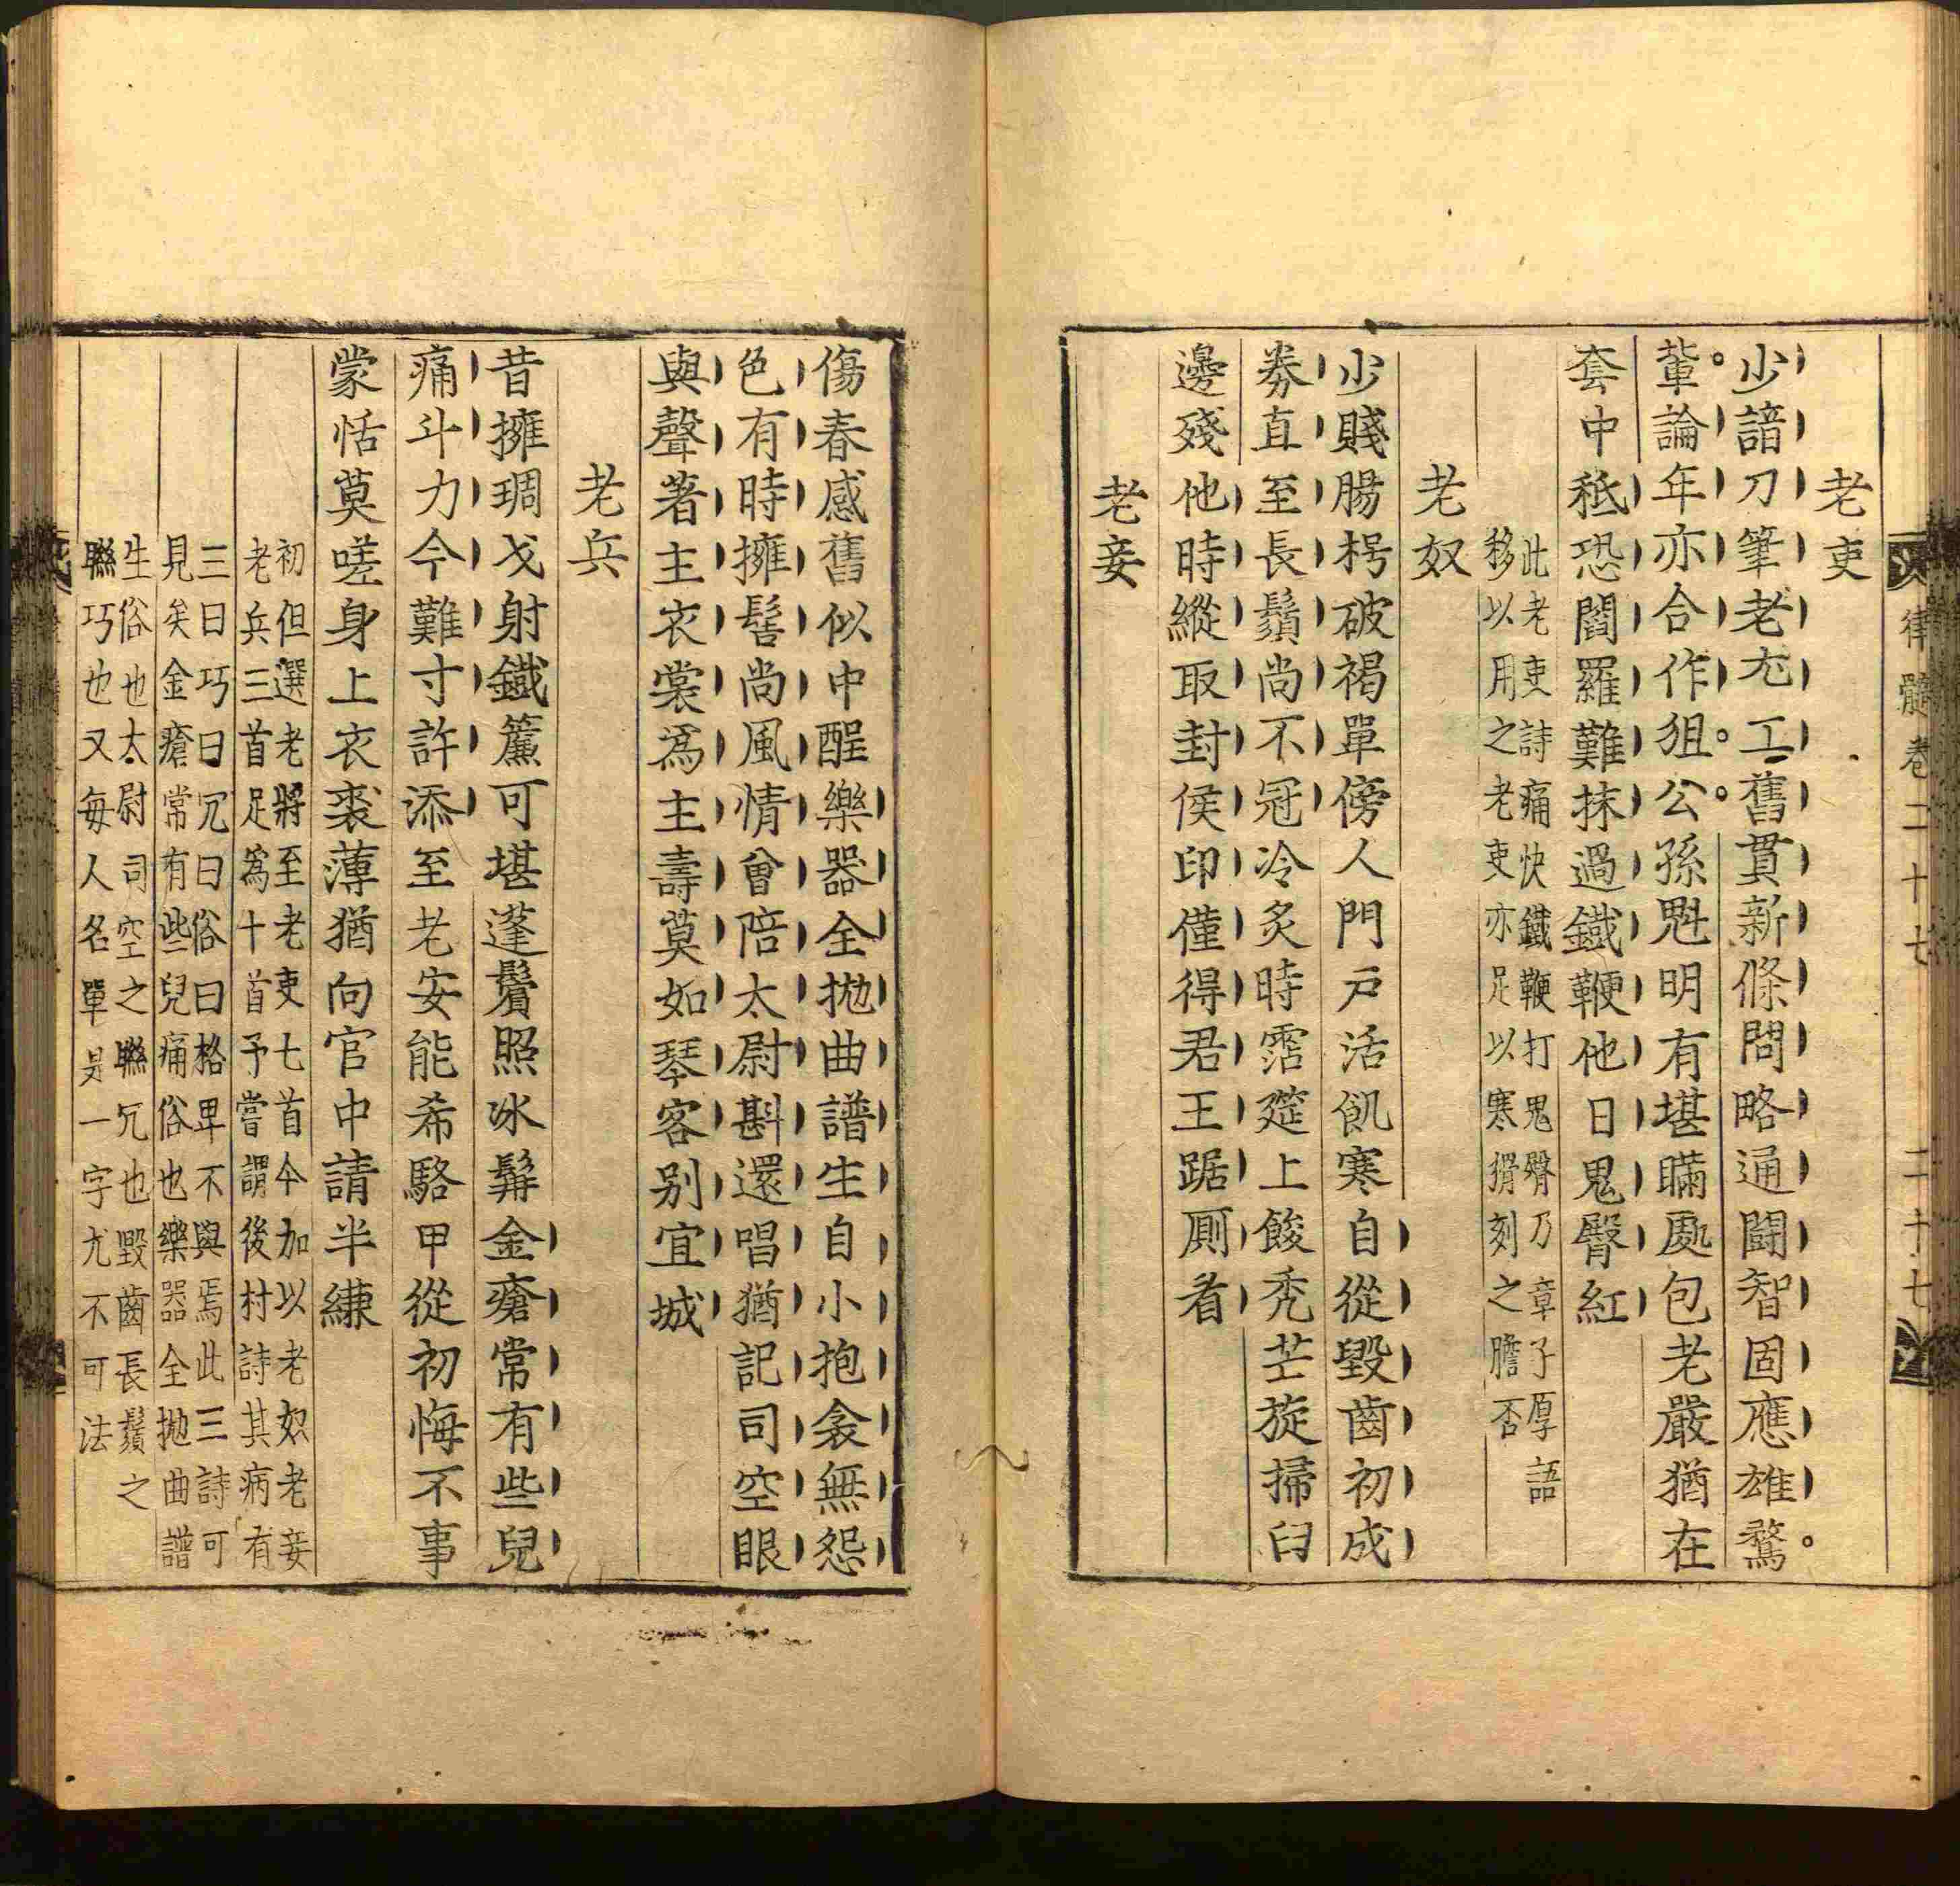 律髓卷二十七 二十七
老吏
少諳刀筆老尢工舊貫新條問略通鬬智固應雄鶩
輩論年亦合作狙公孫魁明有堪瞞處包老嚴猶在
套中秪恐閻羅難抹過鐵鞭他日鬼臀紅
此老吏詩痛快鐵鞭打鬼臀乃章子厚語
移以用之老吏亦足以寒猾刻之膽否
老奴
少賤腸枵破褐單傍人門戶活飢寒自從毀齒初成
券直至長鬚尚不冠冷炙時霑筵上餕秃芒旋掃臼
邊殘他時縱取封侯印僅得君王踞厠看
老妾
傷春感舊似中酲樂器全抛曲譜生自小抱衾無怨
色有時擁髻尚風情曾陪太尉斟還唱猶記司空眼
與聲著主衣裳爲主壽莫如琴客别宜城
老兵
昔擁琱戈射鐵簾可堪蓬鬢照冰髯金瘡常有些兒
痛斗力今難寸許添至老安能希駱甲從初悔不事
蒙恬莫嗟身上衣裘薄猶向官中請半縑
初但選老將至老吏七首今加以老奴老妾
老兵三首足爲十首予嘗謂後村詩其病有
三曰巧曰冗曰俗曰格卑不與焉此三詩可
見矣金瘡常有些兒痛俗也樂器全抛曲譜
生俗也太尉司空之聮冗也毀齒長鬚之
聮巧也又每人名單㫷一字尢不可法